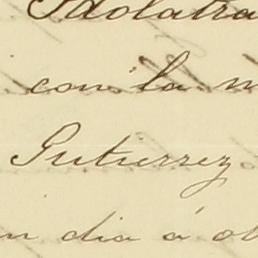 Idolatra
con la m
Gutierrez
n dia á ot